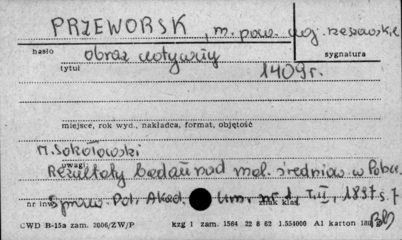 PRZEWORSK, m. pow. woj. rzeszowskie
hasło
obraz wotywny
sygnatura
tytuł
1409 r.
miejsce, rok wyd., nakładca, format, objętość
M. Sokołowski
uwagi
Rezultaty badań nad mal. średniow. w Polsce.
Spraw. Pol. Akad. Um. nr 1 T. II, 1897 s. 7
nr inw. znak klas.
CWD B-15a zam. 2006/ZW/P kzg 1 zam. 1564 22 8 62 1.554000 A1 karton 180